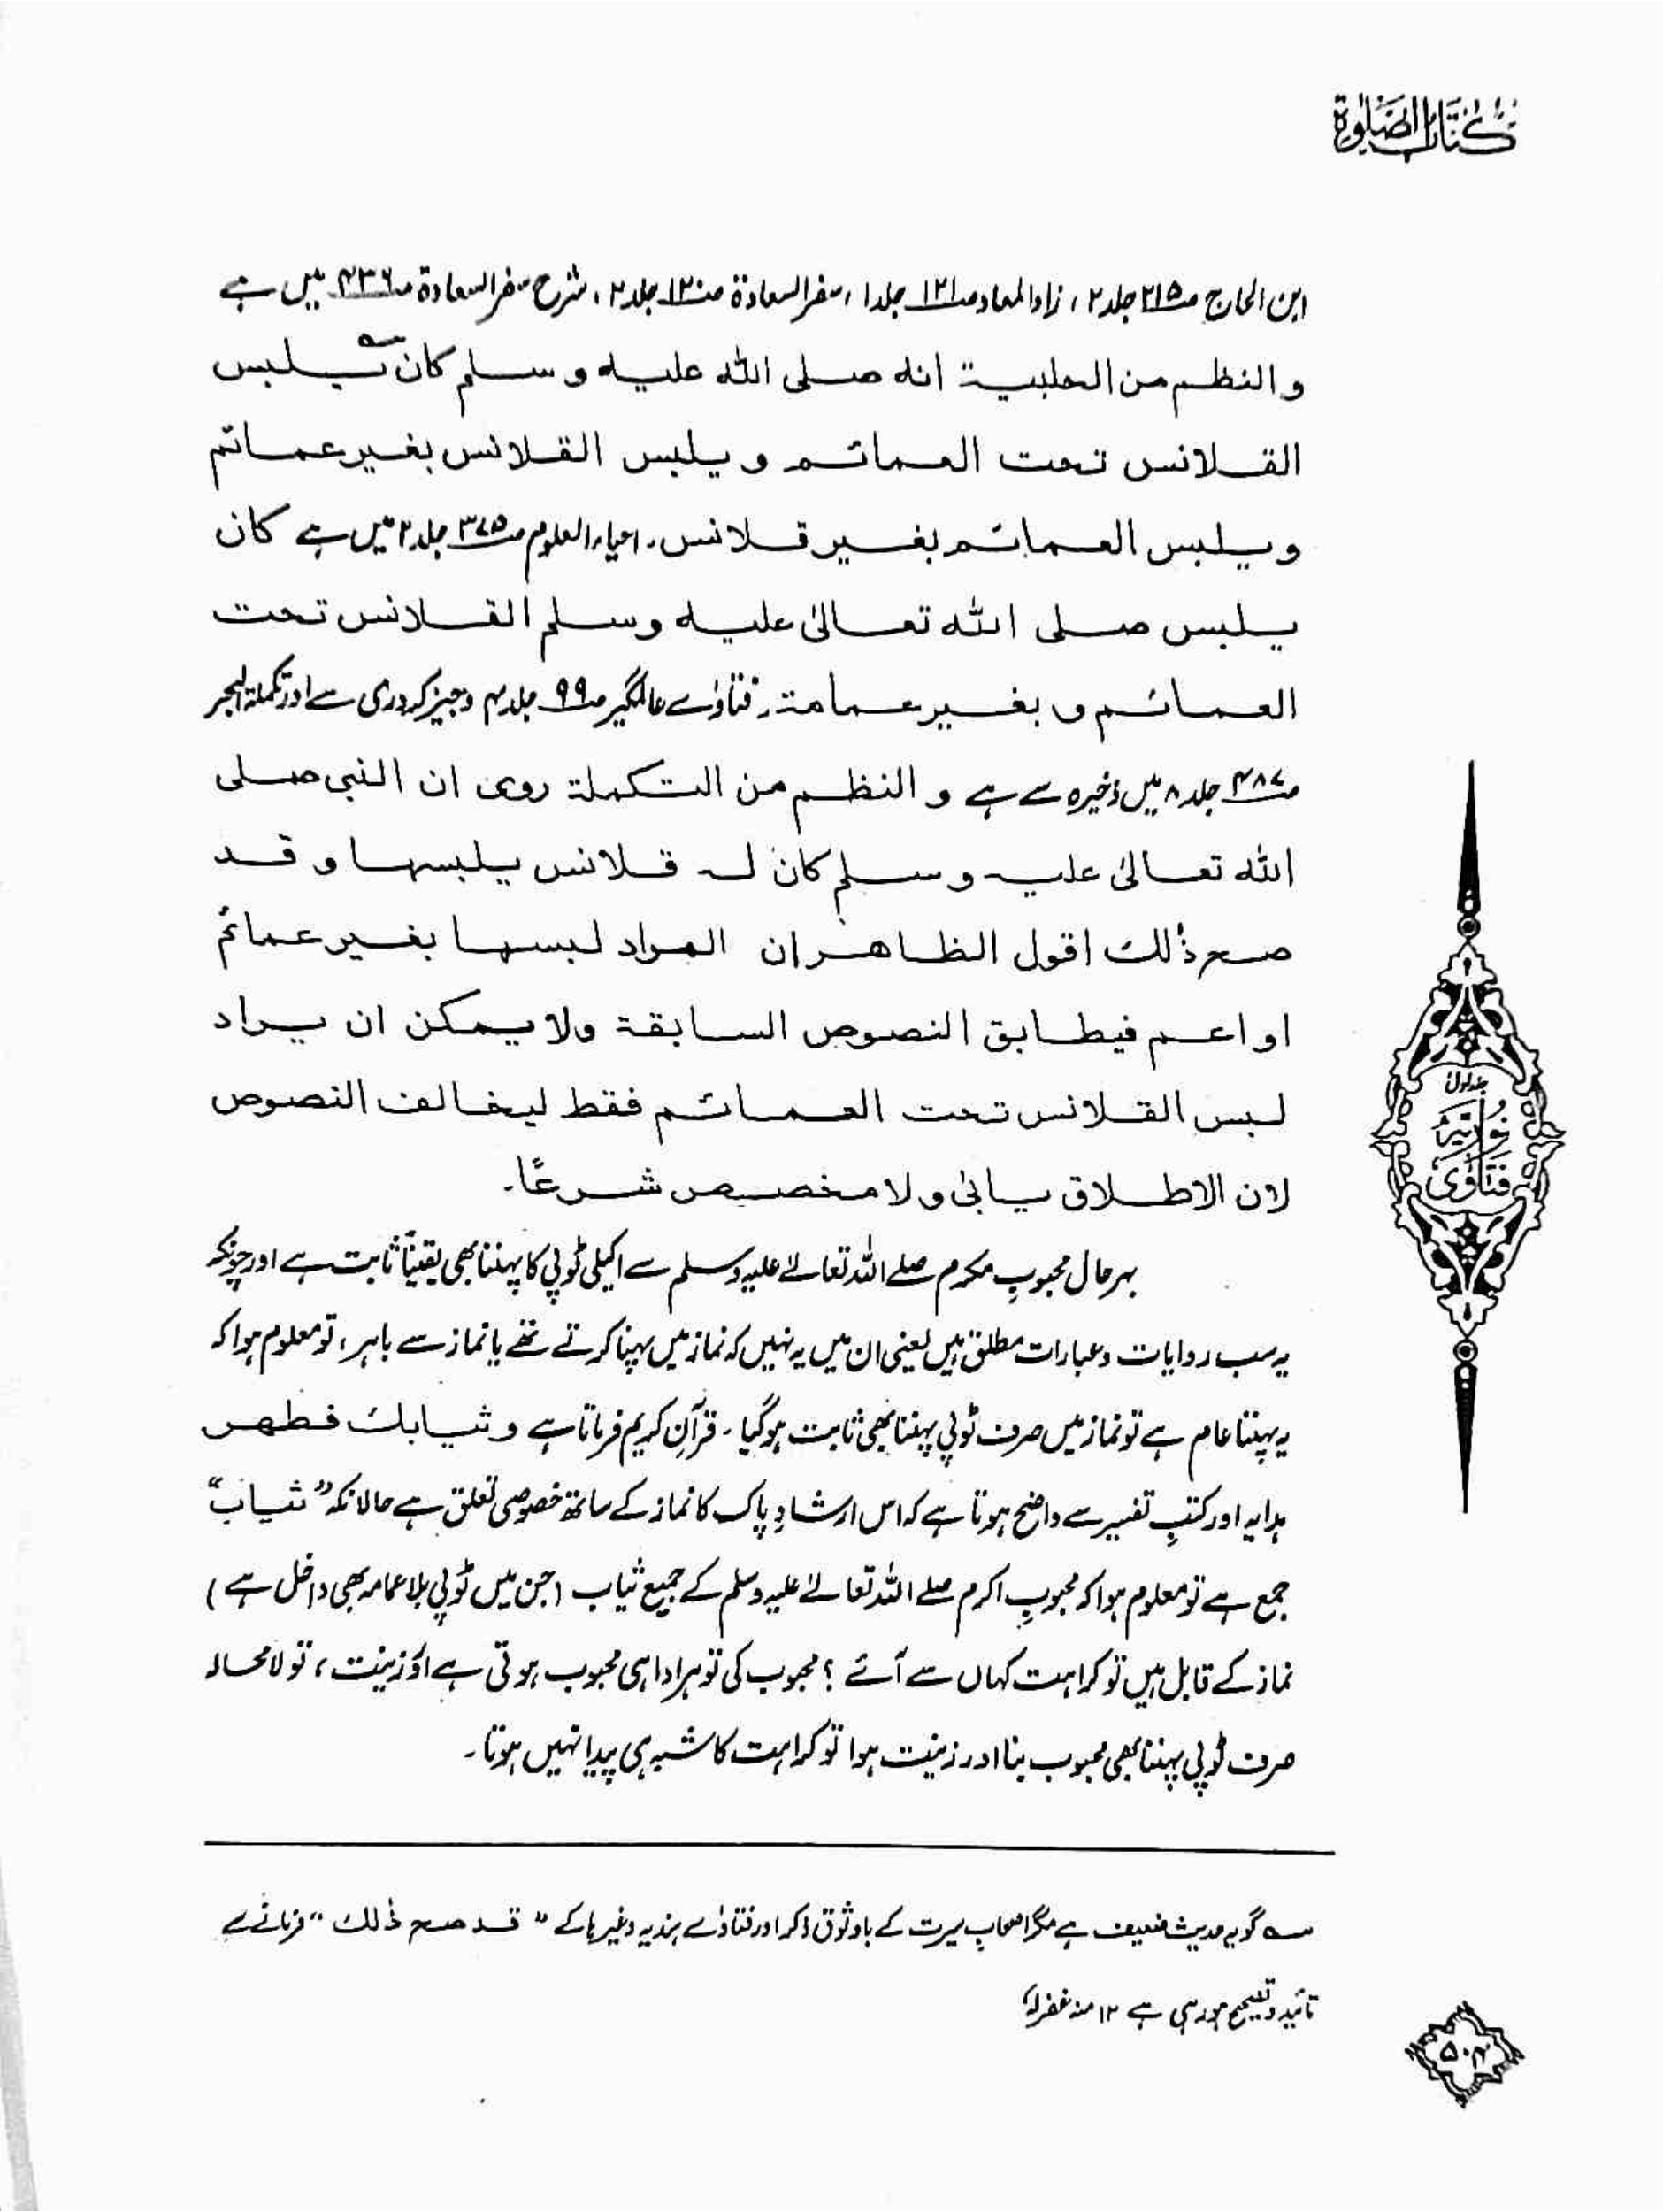 كتاب الصلوة
ابن الحاج ص۲۱۵ جلد ۲ ، زاد المعاد ص۱۲۱ جلد ۱ ، سفر السعادة ص۱۲۰ جلد ۲ ، شرح سفر السعادة ص۴۳۶ میں ہے
و النظم من الحلبية انه صلى الله عليه و سلم كان يلبس
القلانس تحت العمائم و يلبس القلانس بغير عمائم
و يلبس العمائم بغير قلانس۔ احیاء العلوم ص۳۷۵ جلد ۲ میں ہے كان
يلبس صلى الله تعالىٰ عليه وسلم القلانس تحت
العمائم و بغير عمامة۔ فتاوٰے عالمگیر ص۹۹ جلد ۴ وجیز کردری سے اور تکملۃ البحر
ص۴۸۷ جلد ۸ میں ذخیرہ سے ہے و النظم من التكملة روى ان النبى صلى
الله تعالىٰ عليه و سلم كان له قلانس يلبسها و قد
صح ذٰلك اقول الظاهر ان المراد لبسها بغير عمائم
او اعم فيطابق النصوص السابقة ولا يمكن ان يراد
لبس القلانس تحت العمائم فقط ليخالف النصوص
لان الاطلاق يابىٰ و لا مخصيص شرعًا۔
بہرحال محبوبِ مکرم صلے اللہ تعالےٰ علیہ وسلم سے اکیلی ٹوپی کا پہننا بھی یقیناً ثابت ہے اور چونکہ
یہ سب روایات و عبارات مطلق ہیں یعنی ان میں یہ نہیں کہ نماز میں پہنا کرتے تھے یا نماز سے باہر، تو معلوم ہوا کہ
یہ پہننا عام ہے تو نماز میں صرف ٹوپی پہننا بھی ثابت ہوگیا۔ قرآنِ کریم فرماتا ہے و ثيابك فطهر
ہدایہ اور کتبِ تفسیر سے واضح ہوتا ہے کہ اس ارشادِ پاک کا نماز کے ساتھ خصوصی تعلق ہے حالانکہ "ثیاب"
جمع ہے تو معلوم ہوا کہ محبوبِ اکرم صلے اللہ تعالےٰ علیہ وسلم کے جمیع ثیاب (جن میں ٹوپی بلا عمامہ بھی داخل ہے)
نماز کے قابل ہیں تو کراہت کہاں سے آئے ؟ محبوب کی تو ہر ادا ہی محبوب ہوتی ہے اور زینت ، تو لا محالہ
صرف ٹوپی پہننا بھی محبوب بنا اور زینت ہوا تو کراہت کا شبہ ہی پیدا نہیں ہوتا۔
جلد اول
فتاوٰی نوریہ
سہ گو یہ حدیث ضعیف ہے مگر اصحابِ سیرت کے باوثوق ذکر اور فتاوٰے ہندیہ وغیرہا کے "قد صح ذٰلك" فرمانے سے
تائید و تصحیح ہو رہی ہے ۱۲ منہ غفرلہٗ
۵۰۴